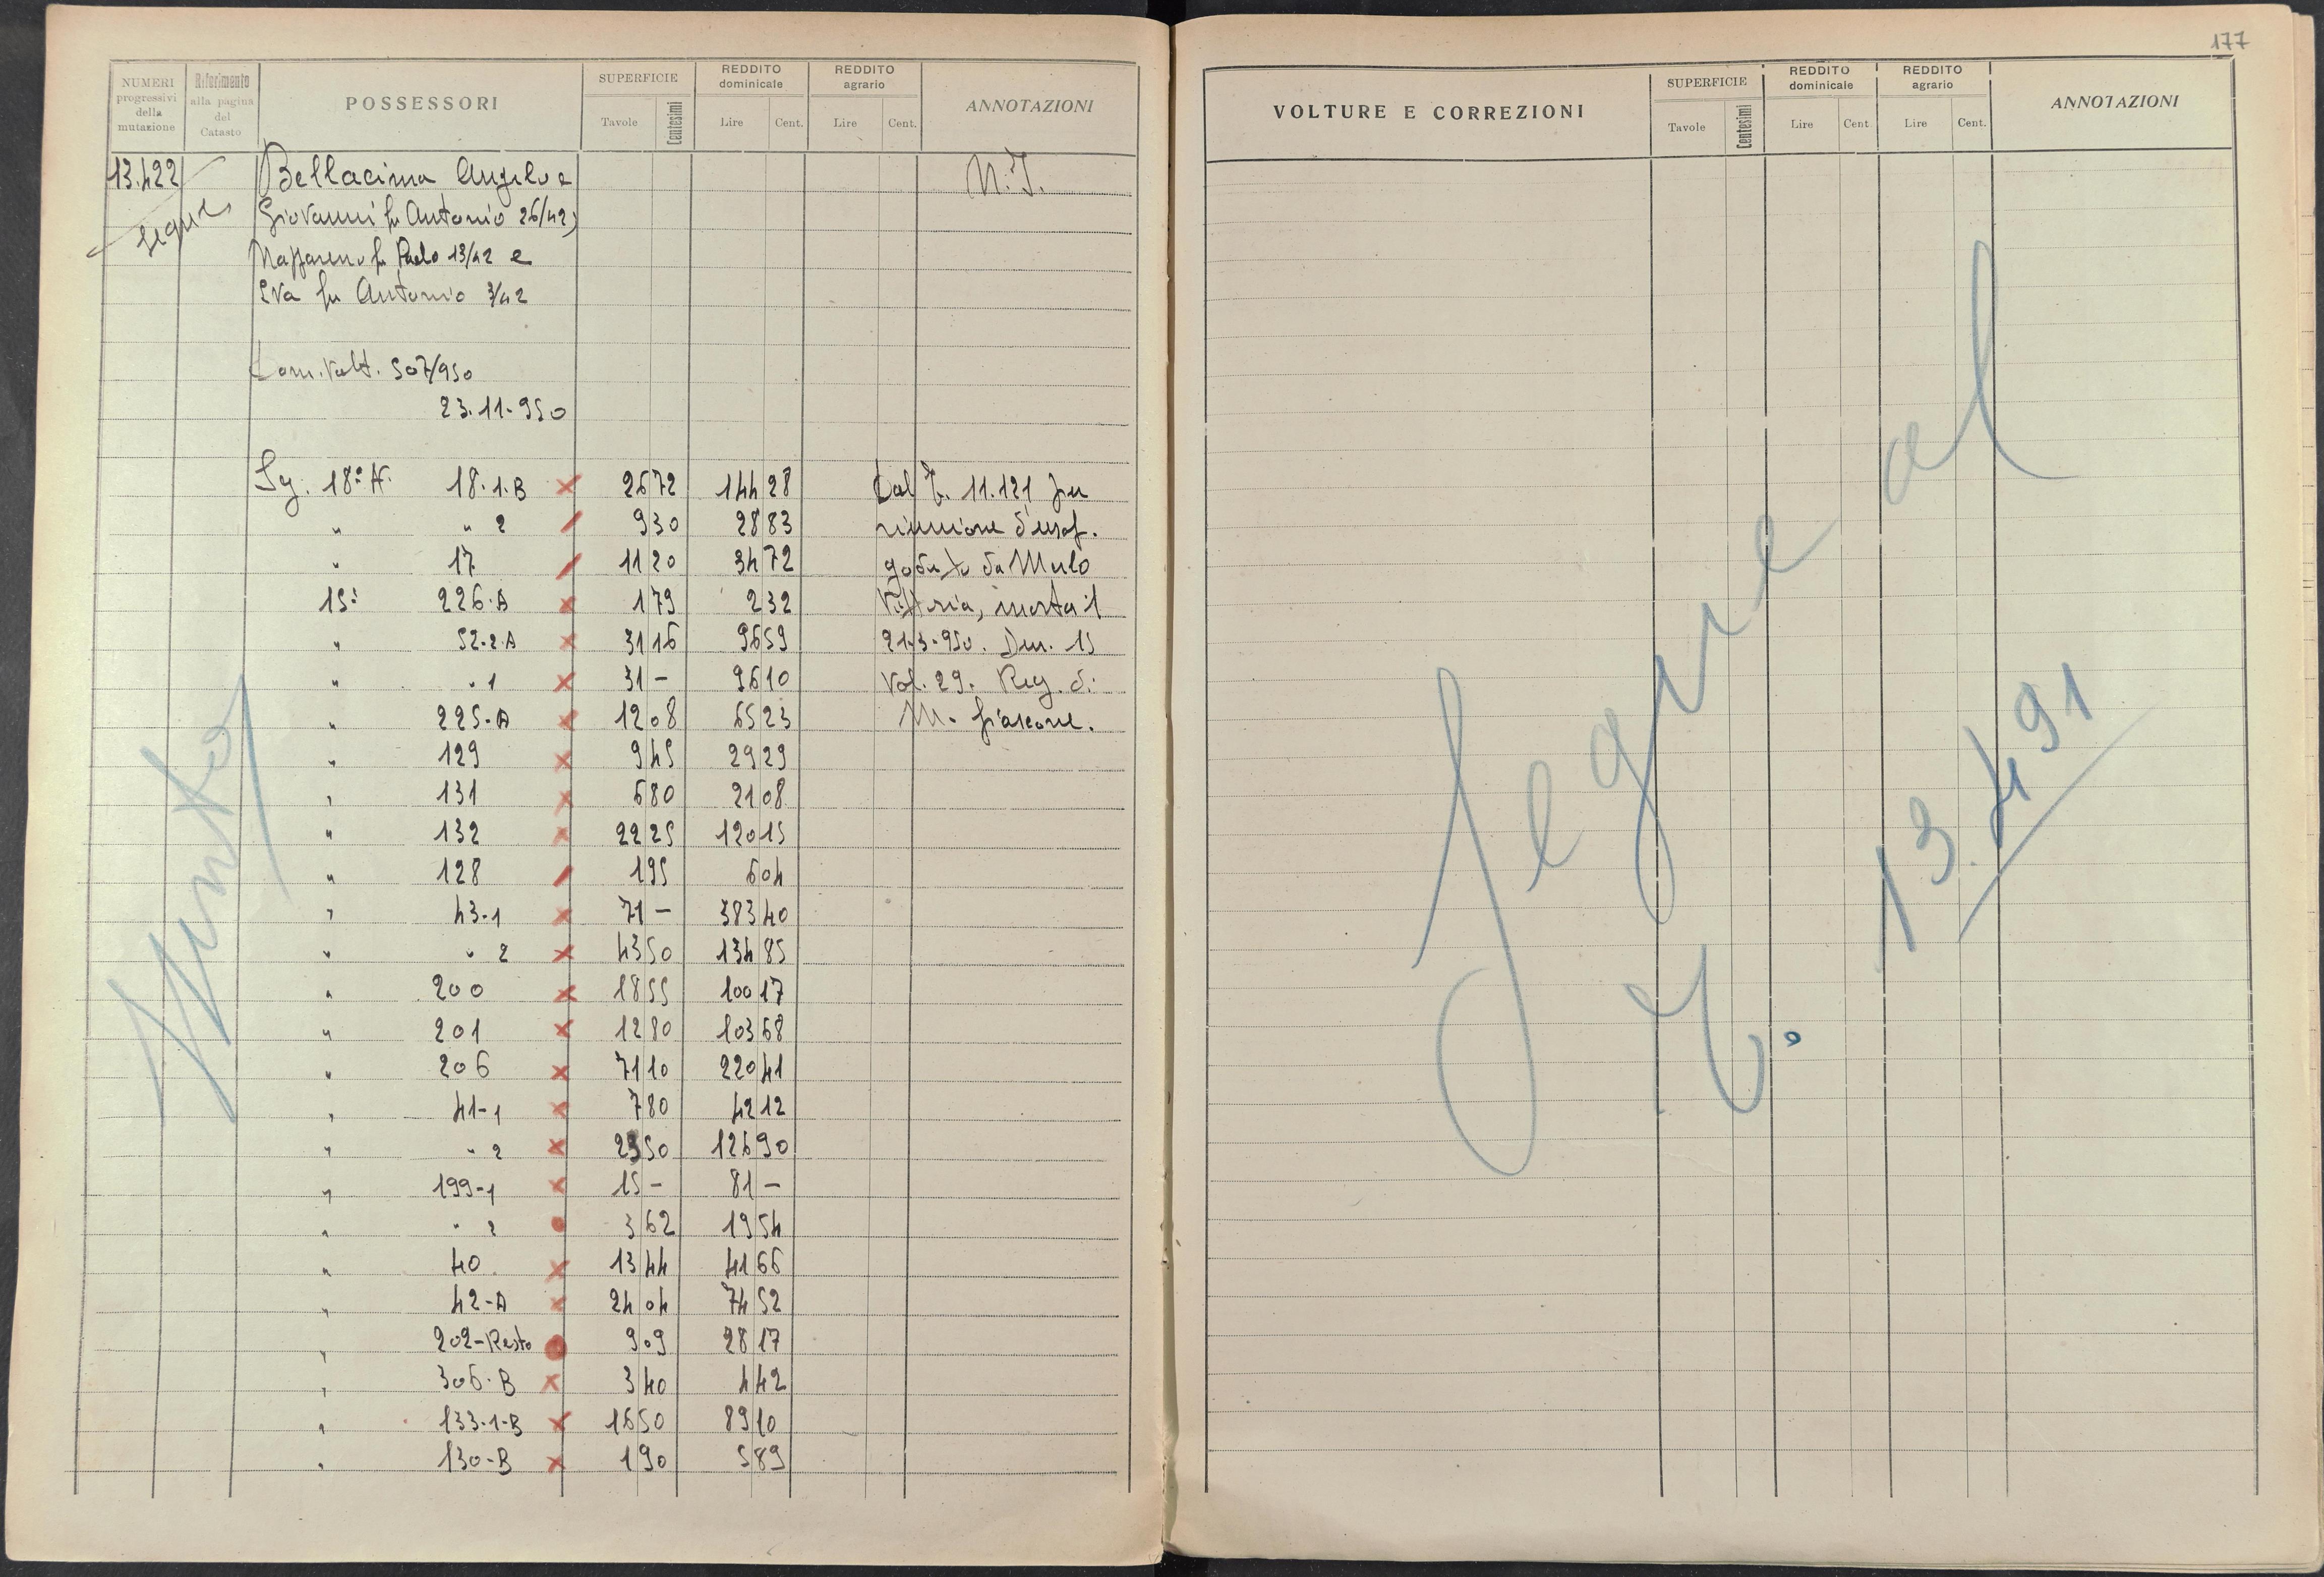 177
NUMERI progressivi della mutazione
Riferimento alla pagina del Catasto
POSSESSORI
SUPERFICIE Tavole Centesimi
REDDITO dominicale Lire Cent.
REDDITO agrario Lire Cent.
ANNOTAZIONI
13.422
segue
Bellacima Angelo e
Giovanni fu Antonio 26/42,
Nazzareno fu Paolo 13/42 e
Eva fu Antonio 3/42
Dom. Volt. 507/950
23.11.950
N.I.
Sez. 18ª A. 18.1.B 26 72 144 28 Dal N. 11.121 per
" " 2 9 30 28 83 riunione d'usuf.
" 17 11 20 34 72 goduto da Mulo
15ª 226.A 1 79 2 32 Vittoria, morta il
" 52-2.A 31 16 96 59 21-3-950. Den. 15
" " 1 31 – 96 10 Vol. 29. Reg. di
" 225.A 12 08 65 23 M. fiascone.
" 129 9 45 29 29
" 131 6 80 21 08
" 132 22 25 120 15
" 128 1 95 6 04
" 43-1 71 – 383 40
" " 2 43 50 134 85
" 200 18 55 100 17
" 201 12 80 103 68
" 206 71 10 220 41
" 41-1 7 80 42 12
" " 2 23 50 126 90
" 199-1 15 – 81 –
" " 2 3 62 19 54
" 40 13 44 41 66
" 42-A 24 04 74 52
" 202-Resto 9 09 28 17
" 306-B 3 40 4 42
" 133-1-B 16 50 89 10
" 130-B 1 90 5 89
VOLTURE E CORREZIONI
SUPERFICIE Tavole Centesimi
REDDITO dominicale Lire Cent.
REDDITO agrario Lire Cent.
ANNOTAZIONI
Segue al
N. 13.491